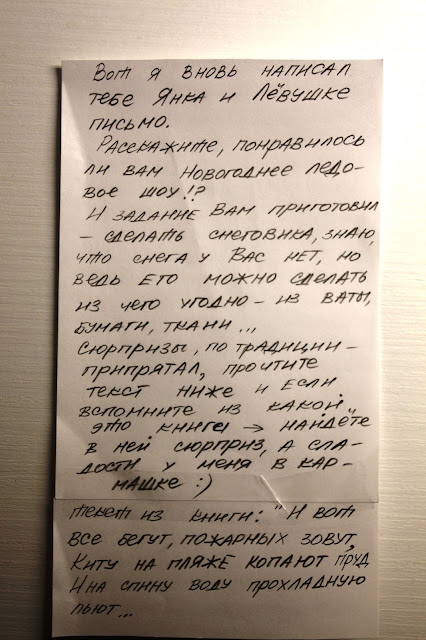 Вот я вновь написал
тебе Янка и Лёвушке
письмо.
Расскажите, понравилось
ли вам Новогоднее ледо-
вое шоу!?
И задание Вам приготовил
- сделать снеговика, знаю,
что снега у Вас нет, но
ведь его можно сделать
из чего угодно - из ваты,
бумаги, ткани...
Сюрпризы, по традиции -
припрятал, прочтите
текст ниже и если
вспомните из какой
это книги → найдёте
в ней сюрприз, а сла-
дости у меня в кар-
машке :)
текст из книги: "И вот
все бегут, пожарных зовут,
Киту на пляже копают пруд
И на спину воду прохладную
льют...